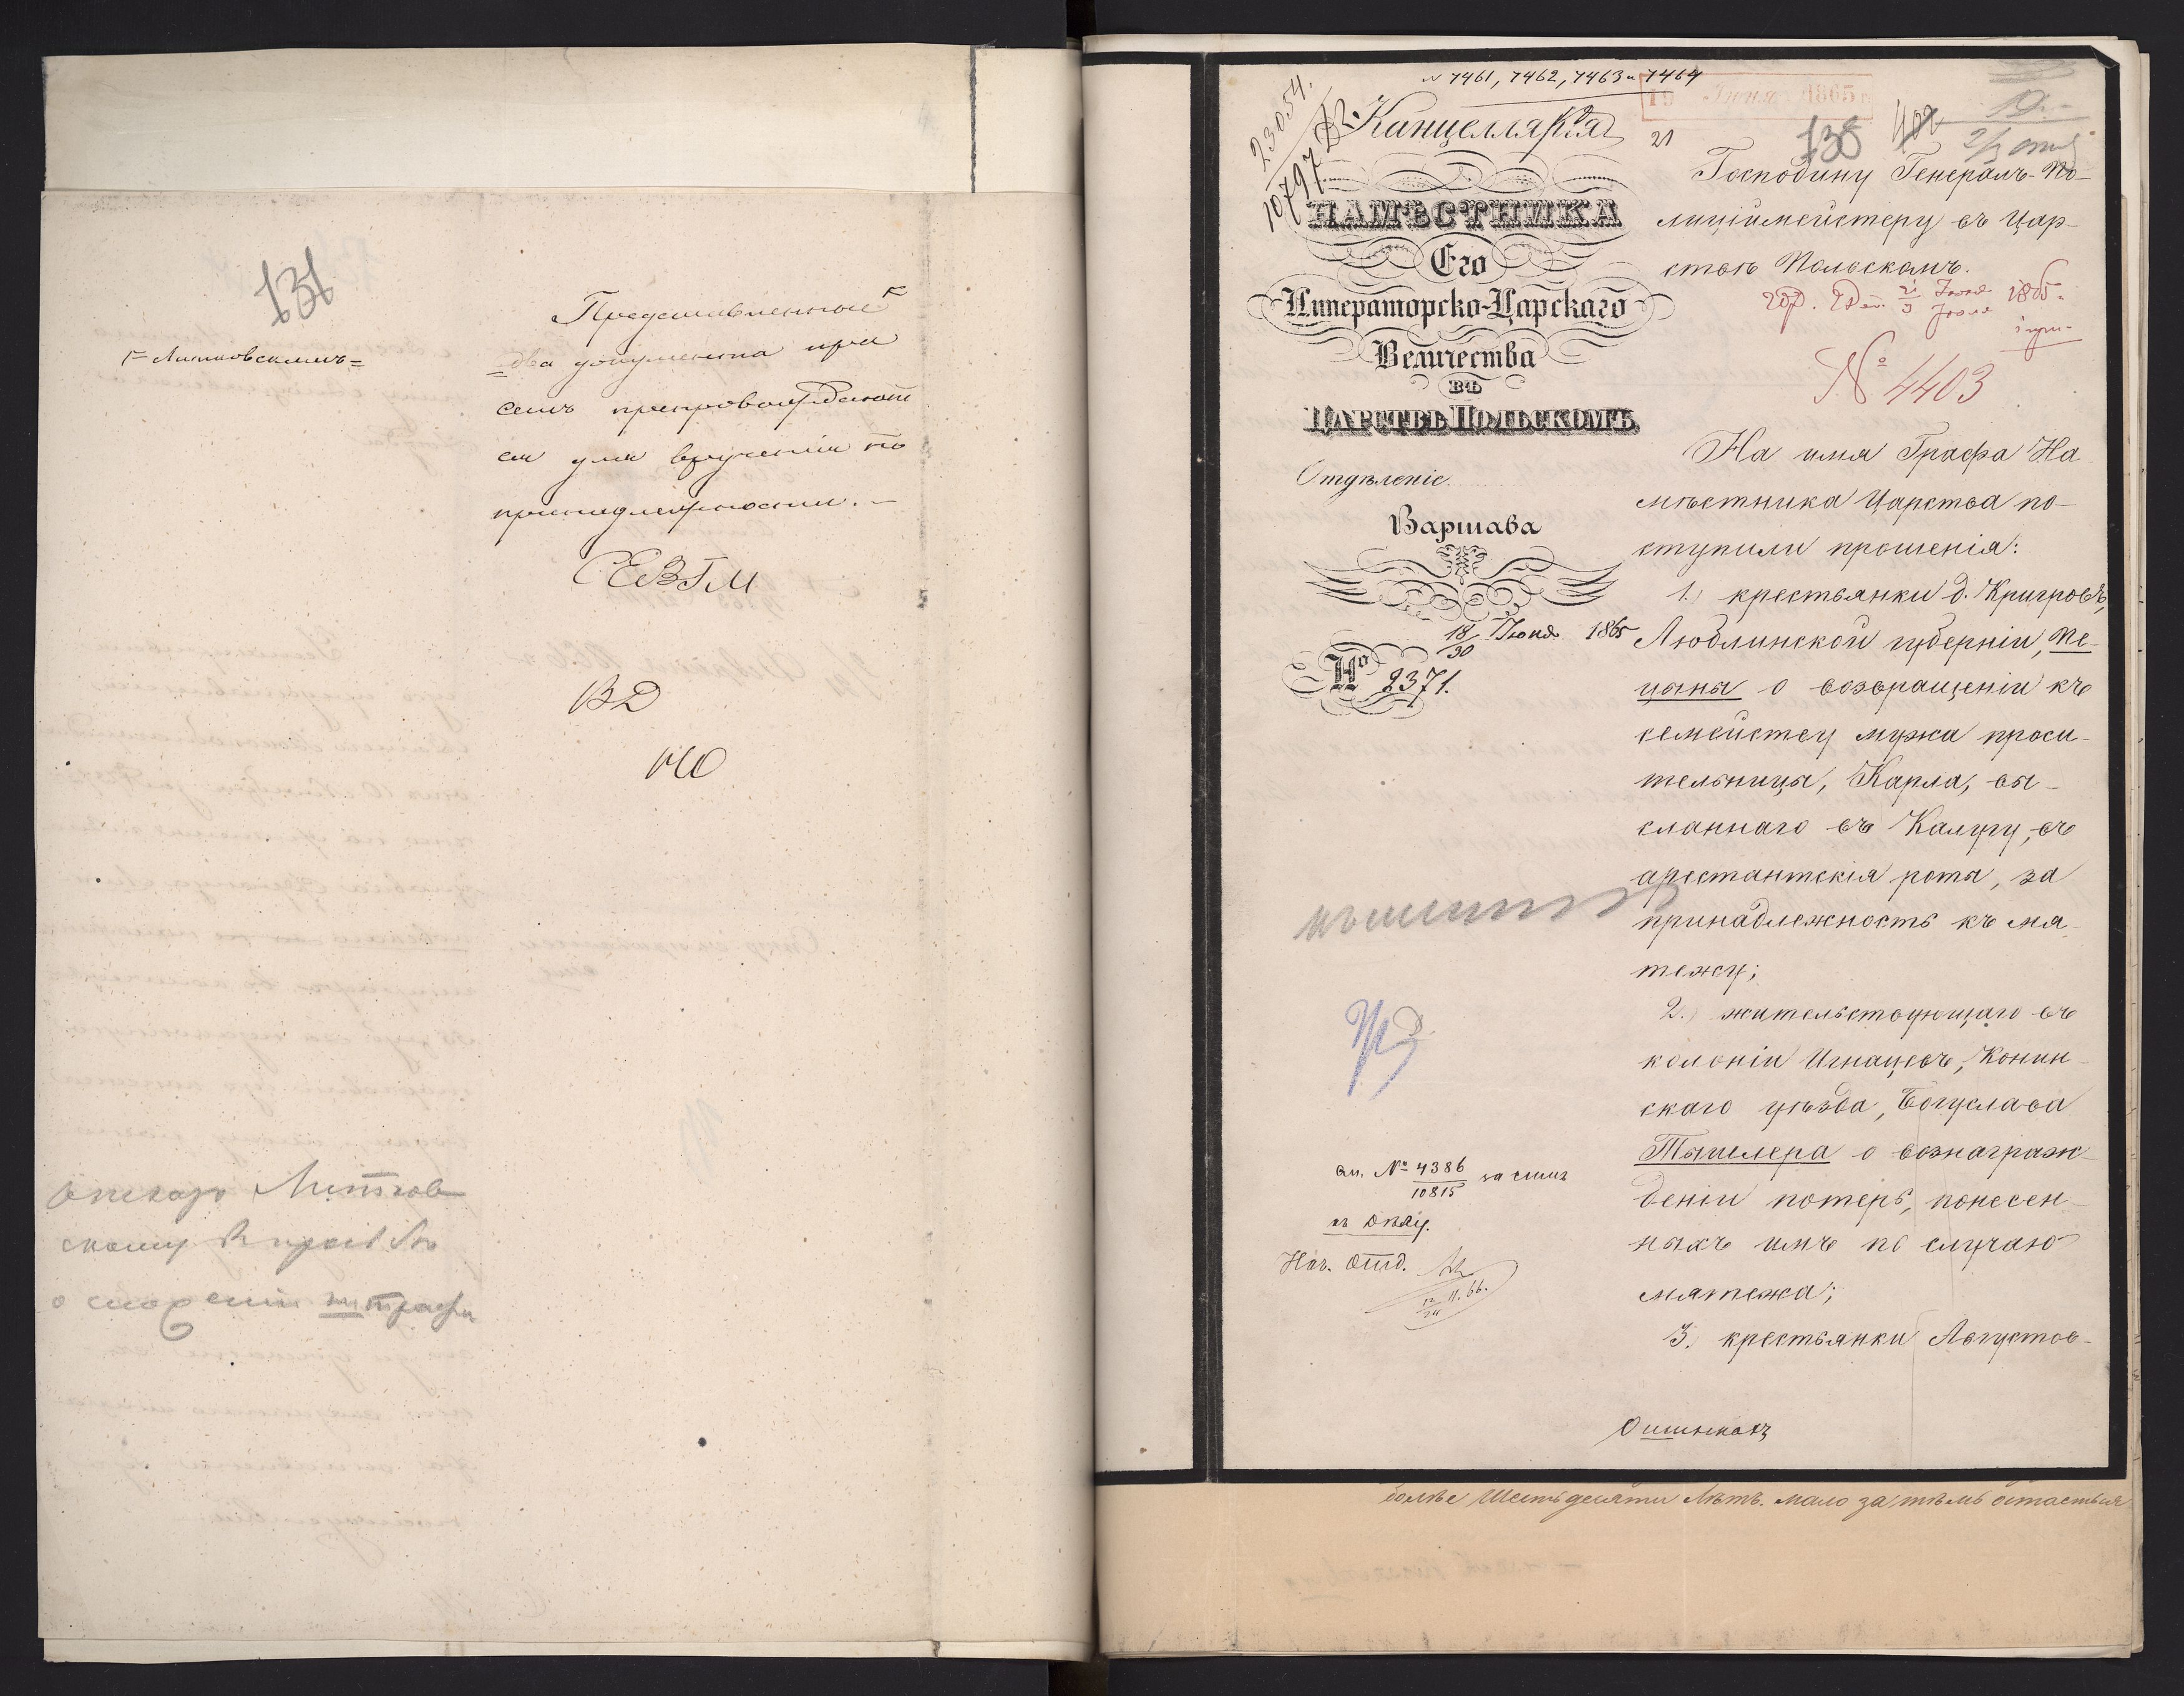 131
Представленные
Литковскимъ
два документа при
семъ препровождают
ся для врученія по
принадлежности.
отказ Литков
скому
о сложеніи штрафа
№ 7461, 7462, 7463 и 7464
19 Іюня 1865
23054.
10797
Канцелярія
НАМѢСТНИКА
Его
Императорско-Царскаго
Величества
ВЪ
ЦАРСТВѢ ПОЛЬСКОМЪ
Отдѣленіе
Варшава
18/30 Іюня 1865
№ 2371.
21
138
Господину Генералъ-По-
лиціймейстеру въ Цар-
ствѣ Польскомъ.
21 Іюня
3 Іюля 1865.
№ 4403
На имя Графа На-
мѣстника Царства по-
ступили прошенія:
1.) крестьянки д.
Люблинской губерніи, Пе-
цыны о возвращеніи къ
семейству мужа проси-
тельницы, Карла, вы-
сланнаго въ Калугу, въ
арестантскія роты, за
принадлежность къ мя-
тежу;
2.) жительствующаго въ
колоніи Игнацевъ, Конин-
скаго уѣзда, Богуслава
Тышлера о вознаграж-
деніи потерь, понесен-
ныхъ имъ по случаю
мятежа;
3. крестьянки Августов-
№ 4386
10815
къ дѣлу.
Нач. Отд.
12/24 11. 66.
болѣе Шестьдесяти Лѣтъ. мало за тѣмъ остается